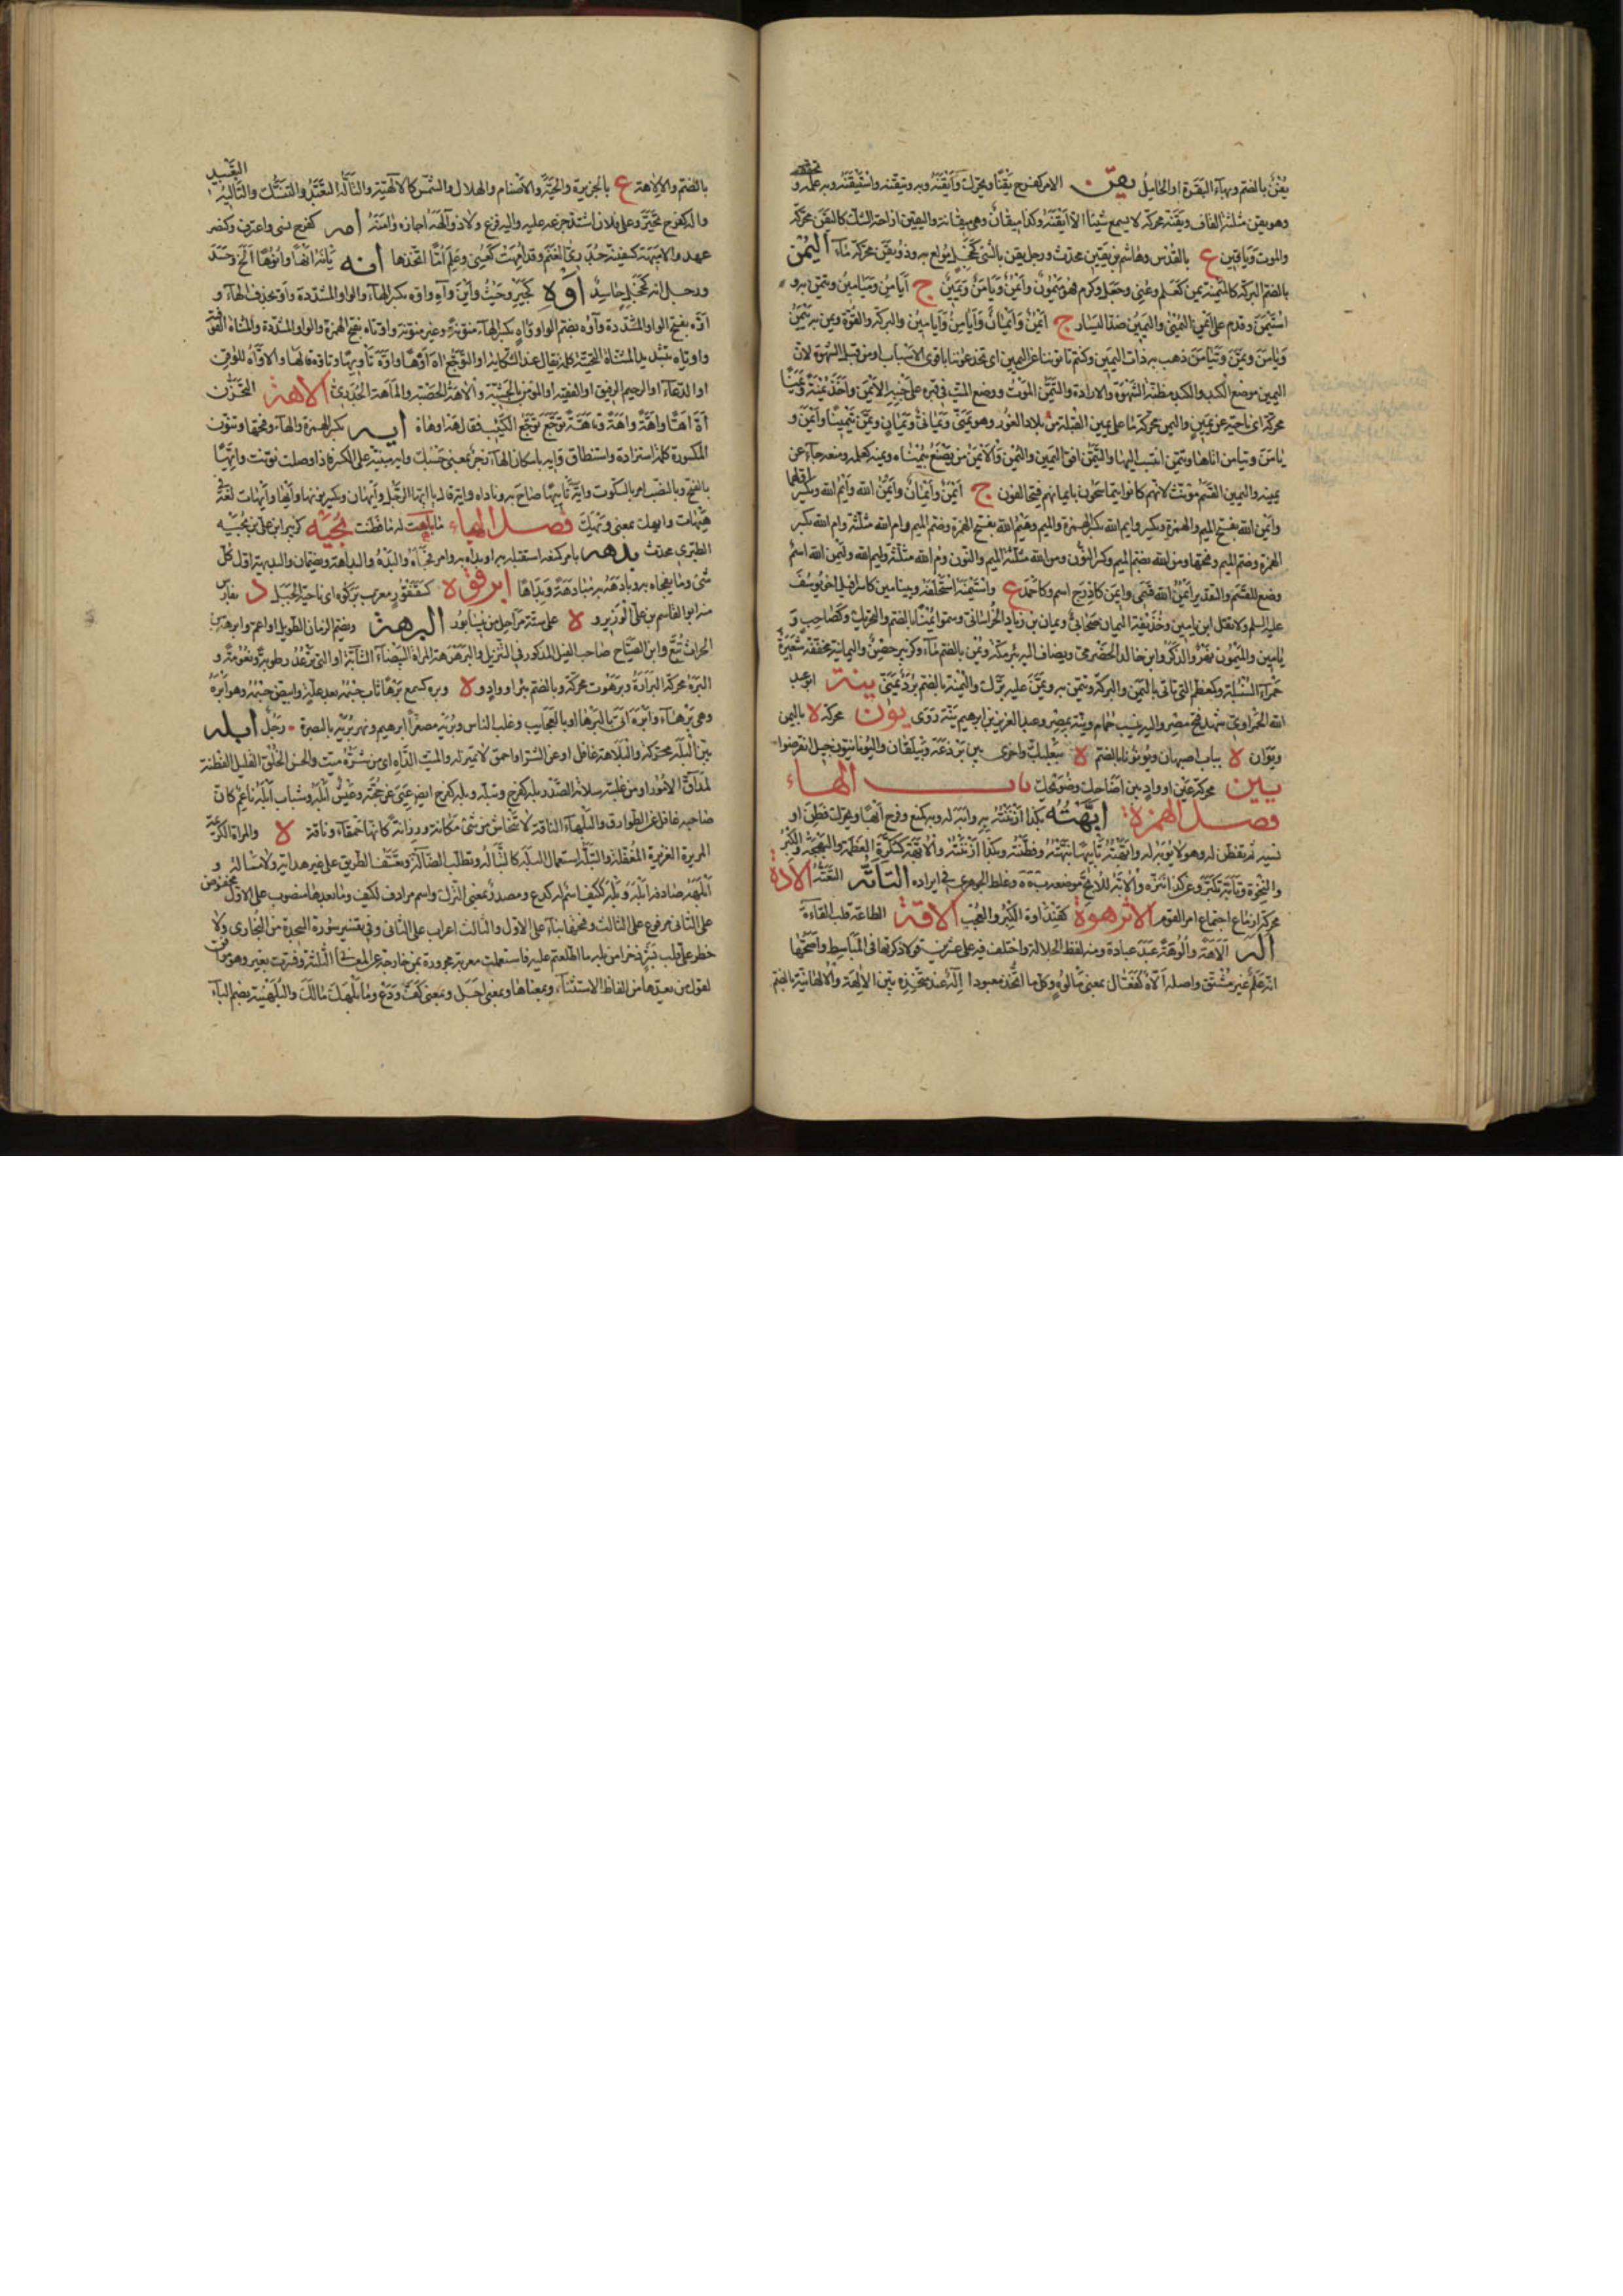 يُفْنٌ بالضم وبهاء البقرة او الحامل يقن الامر كفرح يَقْنًا ويحرك وأيقنه وبه وتيقنه واستيقنه وبه علمه و
وهو يقن مثلثة القاف ويقنة محركة لا يسمع شيئا الا أيقنه وكذا ميقان وهي ميقانة واليقين ازاحة الشك كاليقن محركة
والموت ويافين ع بالقدس وهاشم بن يقين محدث ورجل يقن بالشئ كخجل مولع به وذو يقن محركة ماء اليُمن
بالضم البركة كالميمنة يمن كعلم وعني وجعل وكرم فهو ميمون وأيمن ويامن ويمين ج أيامن وميامين وتيمن به و
استيمن وقدم على أيمن اليمين واليمين ضد اليسار ج أيمن وأيمان وأيامن وأيامين والبركة والقوة ويمن به ييمن
ويامن ويمن وتيامن ذهب به ذات اليمين وكنتم تأتوننا عن اليمين اى تخدعوننا باقوى الاسباب او من قبل الشهوة لان
اليمين موضع الكبد والكبد مظنة الشهوة والارادة والتيمن الموت ووضع الميت في قبره على جنبه الايمن وأخذ يمنة ويمنا
محركة اى ناحية عن يمين واليمن محركة ما على يمين القبلة من بلاد الغور وهو يمني ويماني ويمان ويمن تيمينا وأيمن و
يامن وتيامن اتاها وتيمن انتسب اليها والتيمني افق اليمين واليمن والأيمن من يصنع بيمناه ويمنه كعلمه ومنعه جاء عن
يمينه واليمين القسم مؤنث لانهم كانوا يتماسحون بايمانهم فيتحالفون ج أيمن وأيمان وأيمن الله وأيم الله ويكسر اولهما
وأيمن الله بفتح الميم والهمزة ويكسر وايم الله بكسر الهمزة والميم وهيم الله بفتح الهمزة وضم الميم وام الله مثلثة وام الله بكسر
الهمزة وضم الميم وفتحها ومن الله بضم الميم وكسر النون ومن الله مثلثة الميم والنون وم الله مثلثة وليم الله وليمن الله اسم
وضع للقسم والتقدير أيمن الله قسمي وايمن كاذرح اسم وكاحمد ع واستيمنه استحلفه وبنيامين كاسرافيل اخو يوسف
عليه السلم ولا تقل ابن يامين وحذيفة بن اليمان صحابي ويمان بن زياد الخراساني وسموا يمنا بالضم والتحريك وكصاحب و
يامين والميمون نهر والذكر وابن خالد الحضرمي ويضاف اليه بئر بمكة ويمن بالضم ماء وكزبير حصن واليمانية مخففة شعيرة
حمراء السنبلة وكمعظم الذي تأتي باليمن والبركة وتيمن به ويمن عليه برك واليمنة بالضم برد يمني ينة ابو عبد
الله الخراوى شهد فتح مصر واليه ينسب حمام وينة بمصر وعبد العزيز بن ابرهيم ينة روى يون محركة لا باليمن
ويوان لا بباب اصبهان ويونان بالضم لا ببعلبك واخرى بين برذعة وبيلقان واليونانيون جيل انقرضوا
يين محركة عين او واد بين ضاحك وضويحك باب الهاء
فصل الهمزة ابهته بكذا ازننته به وابه له وبه كمنع وفرح ابها ويحرك فطن او
نسيه ثم تفطن له وهو لا يؤبه له وابهته تأبيها نبهته وفطنته وبكذا ازننته والابهة كسكرة العظمة والبهجة والكبر
والنخوة وتأبه تكبر وعن كذا تنزه والابه للابح موضعه ب ه ه وغلط الجوهري في ايراده التأته التعته الادة
محركة اجتماع امر القوم الانزهوة كقندأوة الكبر والعجب الاقة الطاعة قلب القاءة
اله الاهة والوهة عبد عبادة ومنه لفظ الجلالة واختلف فيه على عشرين قولا ذكرتها في المباسيط واصحها
انه علم غير مشتق واصله الاه كفعال بمعنى مألوه وكل ما اتخذ معبودا اله عند متخذه بين الالهة والالهانية بالضم
بالضم والالاهة ع بالجزيرة والحية والاصنام والهلال والشمس كالالاهية والتأله التعبد والتنسك والتأليه التعبيد
واله كفرح تحير وعلى فلان اشتد جزعه عليه واليه فزع ولاذ وآلهه اجاره وآمنه امه كفرح نسى واعترف وكنصر
عهد والاميهة كسفينة جدري الغنم وقد أمهت كعني وعلم أما اتخذها انه يأنه انها وانوها أنح وحسد
ورجل انه كخجل حاسد اوه كجير وحيث وأين وآه واوه بكسر الهاء والواو المشددة واو بحذف الهاء و
اوه بفتح الواو المشددة وآوه بضم الواو وآه بكسر الهاء منونة وغير منونة واوتاه بفتح الهمزة والواو والمشددة والمثناة الفوقية
واوياه بتشديد المثناة التحتية كلمة تقال عند الشكاية او التوجع آه اوها واوه تأويها وتأوه قالها والاواه الموقن
او الدعاء او الرحيم الرفيق او الفقيه او المؤمن بالحبشية والآهة الحصبة والماهة الجدري الاهة التحزن
اه اها واهة وآهة وتأهه توجع توجع الكئيب فقال آه او هاه ايه بكسر الهمزة والهاء وفتحها وتنون
المكسورة كلمة استزادة واستنطاق وايه باسكان الهاء زجر بمعنى حسبك وايه مبنية على الكسر فاذا وصلت نونت وايها
بالفتح وبالنصب امر بالسكوت وايه تأييها صاح به وناداه وايه قال يا ايها الرجل وايهان ويكسر نونها وايها وايهات لغة في
هيهات وايهك بمعنى ويهك فصل الباء ما بأهت له ما فطنت بجيه كزبير ابن علي بن بجيه
الطبري محدث بدهه بامر كمنعه استقبله به او بداه به وامر فجأه والبده والبداهة ويضمان والبديهة اول كل
شئ وما يفجأه به وبادهه به مبادهة وبداها ابرقوه كسقنقور معرب بركوه اى ناحية الجبل د بفارس
منه ابو القاسم بن علي الوزير و لا على ستة مراحل من نيسابور البرهة ويضم الزمان الطويل او اعم وابرهة بن
الحرث تبع وابن الصباح صاحب الفيل المذكور في التنزيل والبرهرهة المراة البيضاء الشابة او التي ترعد رطوبة ونعومة و
البره محركة البرارة وبرهوت محركة وبالضم بئر او واد و لا وبره كسمع برها ثاب جسمه بعد علة وابيض جسمه وهو ابره
وهي برهاء وابره اتى بالبرهان او بالعجايب وغلب الناس وبريه مصغر ابرهيم ونهر بريه بالبصرة رجل ابله
بين البله محركة والبلاهة غافل او عن الشر او احمق لا تمييز له والميت الداء اى من شره ميت والحسن الخلق القليل الفطنة
لمداق الامور او من غلبته سلامة الصدر بله كفرح وتبله وبله كفرح ايضا عيى عن حجته وعيش ابله وشباب ابله ناعم كان
صاحبه غافل عن الطوارق والبلهاء الناقة لا تنحاش من شئ مكانة ورزانة كانها حمقاء وناقة لا والمراة الكريمة
المريرة الغريرة المغفلة والتبله استعمال البله كالتباله وتطلب الضالة وتعسف الطريق على غير هداية ولا مسئلة و
ابلهه صادفه ابله وبله ككيف اسم لدع ومصدر بمعنى الترك واسم مرادف لكيف وما بعدها منصوب على الاول مخفوض
على الثاني مرفوع على الثالث وفتحها بناء على الاول والثالث اعراب على الثاني وفي تفسير سورة السجدة من البخاري ولا
خطر على قلب بشر ذخرا من بله ما اطلعتم عليه فاستعملت معربة مجرورة بمن خارجة عن المعاني الثلثة وفسرت بغير وهو موافق
لقول من يعدها من الفاظ الاستثناء وبمعناها وبمعنى اجل وبمعنى كف ودع وما بلهك مالك والبلهنية بضم الباء